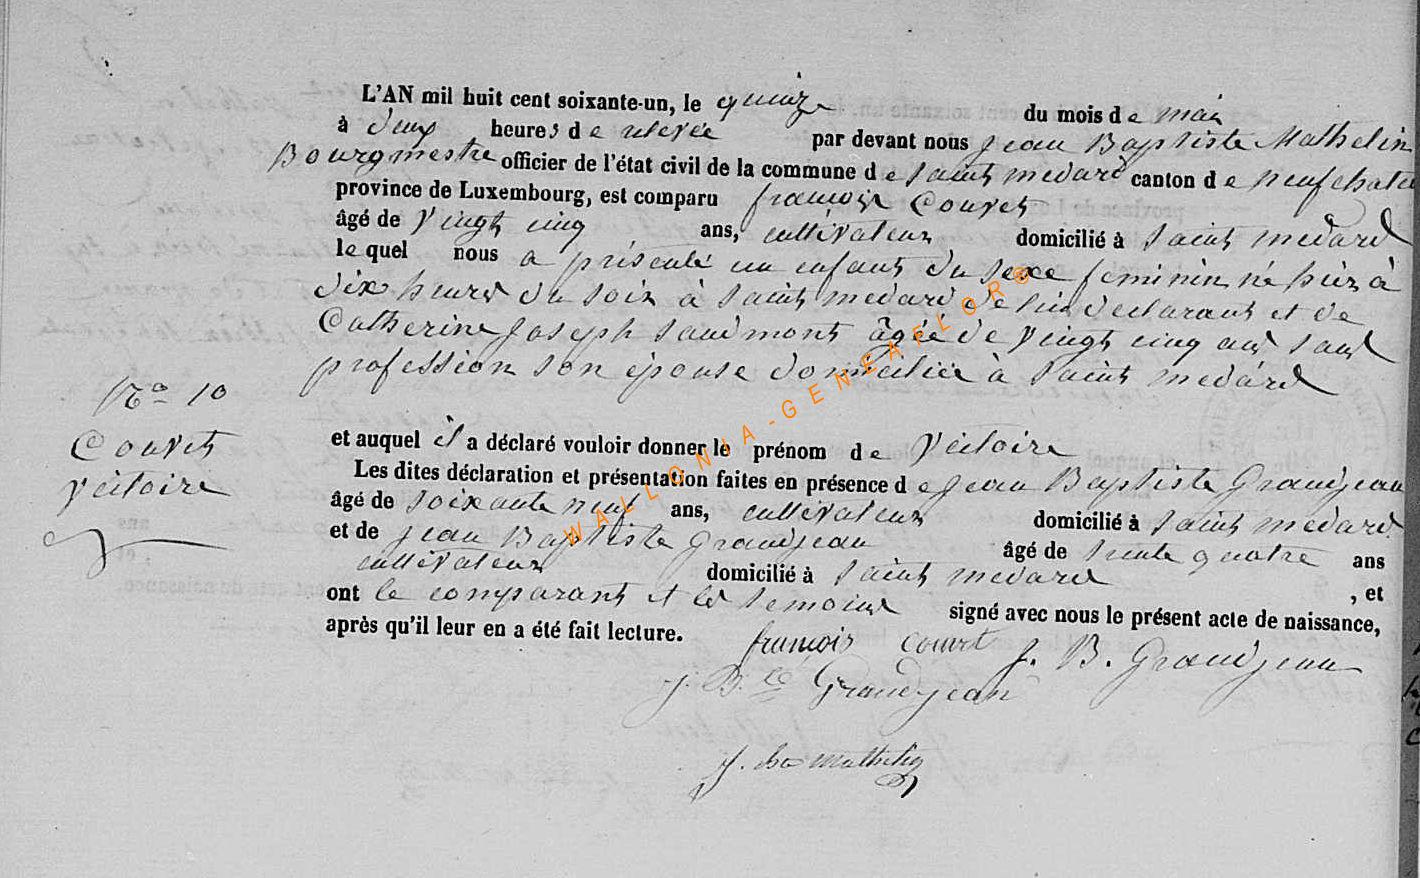 L'AN mil huit cent soixante-un, le quinze du mois de mai
à deux heures de relevée par devant nous Jean Baptiste Mathelin
Bourgmestre officier de l'état civil de la commune de Saint medard canton de neufchateau
province de Luxembourg, est comparu françois Couvet
âgé de vingt cinq ans, cultivateur domicilié à Saint medard
lequel nous a présenté un enfant du sexe feminin né hier à
dix heures du soir à Saint medard de lui declarant et de
Catherine Joseph Saudmont âgée de vingt cinq ans sans
profession son épouse domiciliée à Saint medard
No 10
Couvet
victoire
et auquel il a déclaré vouloir donner le prénom de victoire
Les dites déclaration et présentation faites en présence de Jean Baptiste Grandjean
âgé de soixante neuf ans, cultivateur domicilié à Saint medard
et de jean Baptiste Grandjean âgé de trente quatre ans
cultivateur domicilié à Saint medard , et
ont le comparant et les temoins signé avec nous le présent acte de naissance,
après qu'il leur en a été fait lecture.
françois Couvet J. B. Grandjean
J. B.te Grandjean
J. Bte Mathelin
WALLONIA-GENEAFLOR®